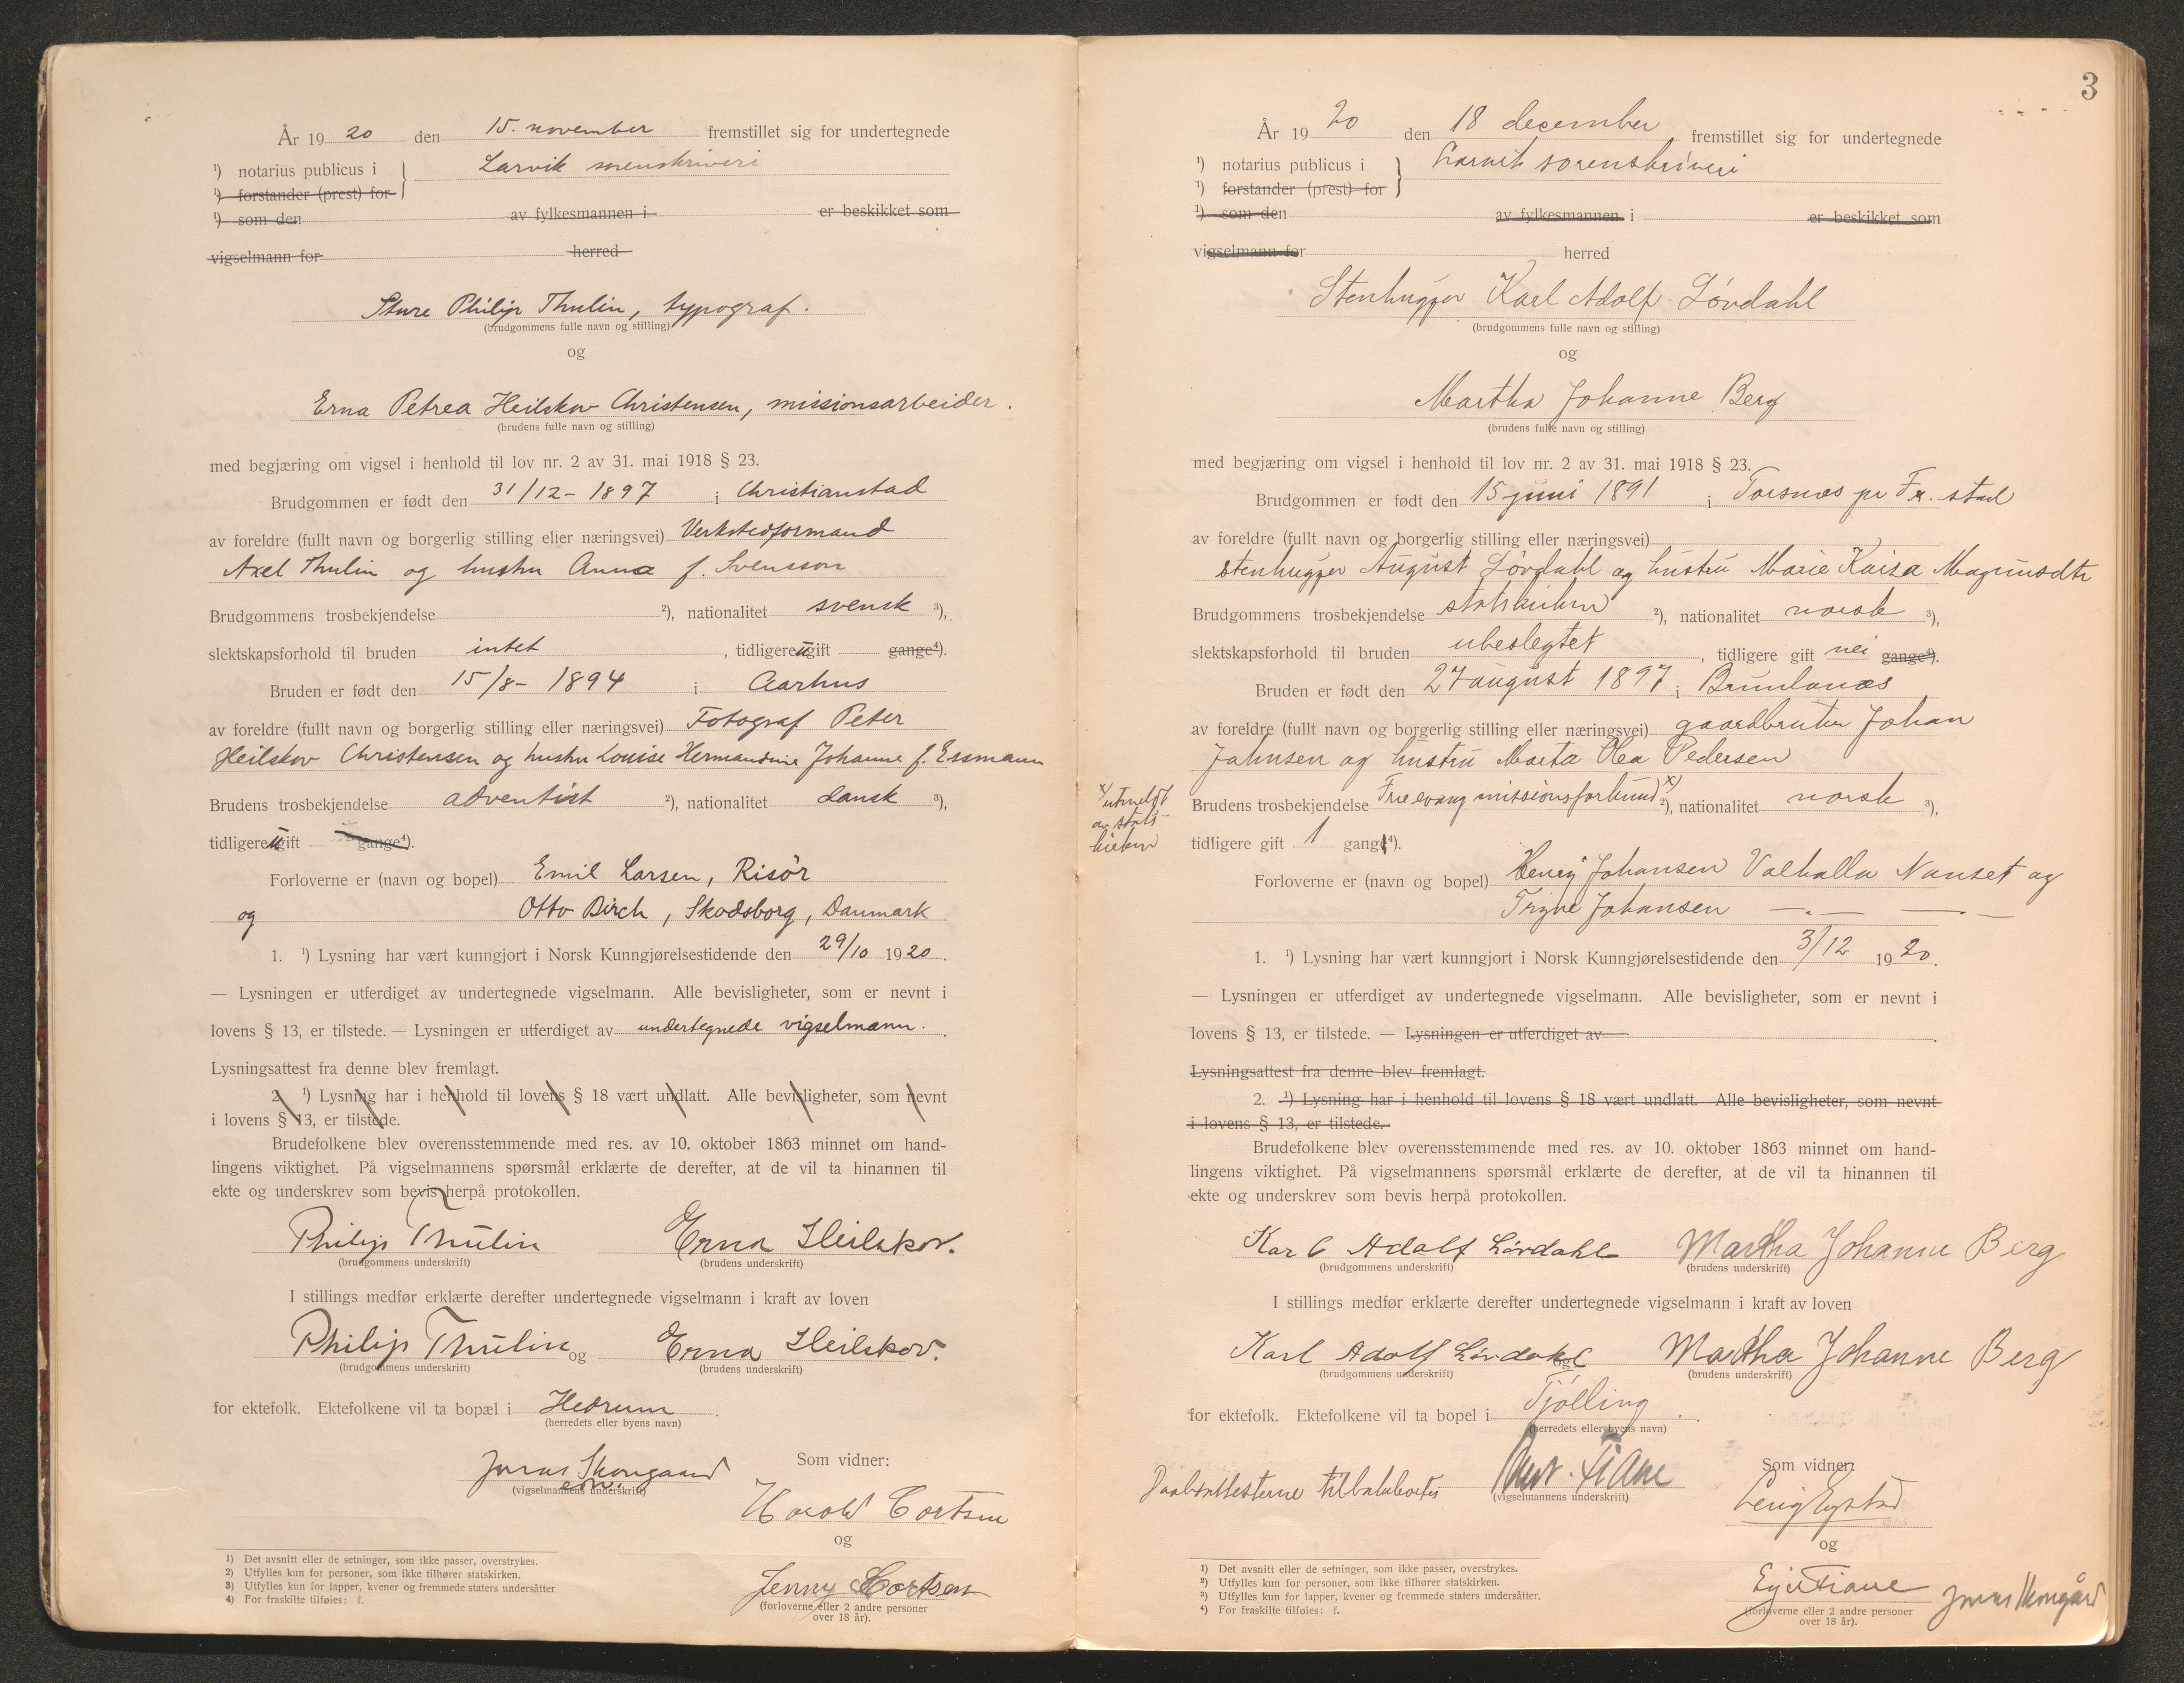 År 1920 den 15. november fremstillet sig for undertegnede
¹) notarius publicus i } Larvik sorenskriveri
¹) forstander (prest) for
¹) som den av fylkesmannen i er beskikket som
vigselmann for herred
Sture Philip Thulin, typograf.
(brudgommens fulle navn og stilling)
og
Erna Petrea Heilskov Christensen, missionsarbeider.
(brudens fulle navn og stilling)
med begjæring om vigsel i henhold til lov nr. 2 av 31. mai 1918 § 23.
Brudgommen er født den 31/12 - 1897 i Christianstad
av foreldre (fullt navn og borgerlig stilling eller næringsvei) Verkstedformand
Axel Thulin og hustru Anna f. Svensson
Brudgommens trosbekjendelse ²), nationalitet svensk ³),
slektskapsforhold til bruden intet, tidligere u gift gange⁴).
Bruden er født den 15/8 - 1894 i Aarhus
av foreldre (fullt navn og borgerlig stilling eller næringsvei) Fotograf Peter
Heilskov Christensen og hustru Louise Hermandine Johanne f. Essmann
Brudens trosbekjendelse adventist ²), nationalitet dansk ³),
tidligere u gift gange⁴).
Forloverne er (navn og bopel) Emil Larsen, Risör
og Otto Birch, Skodsborg, Danmark
1. ¹) Lysning har vært kunngjort i Norsk Kunngjørelsestidende den 29/10 1920.
— Lysningen er utferdiget av undertegnede vigselmann. Alle bevisligheter, som er nevnt i
lovens § 13, er tilstede. — Lysningen er utferdiget av undertegnede vigselmann.
Lysningsattest fra denne blev fremlagt.
2. ¹) Lysning har i henhold til lovens § 18 vært undlatt. Alle bevisligheter, som nevnt
i lovens § 13, er tilstede.
Brudefolkene blev overensstemmende med res. av 10. oktober 1863 minnet om hand-
lingens viktighet. På vigselmannens spørsmål erklærte de derefter, at de vil ta hinannen til
ekte og underskrev som bevis herpå protokollen.
Philip Thulin Erna Heilskov.
(brudgommens underskrift) (brudens underskrift)
I stillings medfør erklærte derefter undertegnede vigselmann i kraft av loven
Philip Thulin og Erna Heilskov.
(brudgommens underskrift) (brudens underskrift)
for ektefolk. Ektefolkene vil ta bopæl i Hedrum.
(herredets eller byens navn)
Jonas Skougaard
(vigselmannens underskrift)
Som vidner:
Harold Cortsen
og
Jenny Cortsen
(forloverne eller 2 andre personer
over 18 år).
1) Det avsnitt eller de setninger, som ikke passer, overstrykes.
2) Utfylles kun for personer, som ikke tilhører statskirken.
3) Utfylles kun for lapper, kvener og fremmede staters undersåtter
4) For fraskilte tilføies: f.
3
År 1920 den 18 december fremstillet sig for undertegnede
¹) notarius publicus i } Larvik sorenskriveri
¹) forstander (prest) for
¹) som den av fylkesmannen i er beskikket som
vigselmann for herred
Stenhugger Karl Adolf Lövdahl
(brudgommens fulle navn og stilling)
og
Martha Johanne Berg
(brudens fulle navn og stilling)
med begjæring om vigsel i henhold til lov nr. 2 av 31. mai 1918 § 23.
Brudgommen er født den 15 juni 1891 i Torsnæs pr Fr. stad
av foreldre (fullt navn og borgerlig stilling eller næringsvei)
stenhugger August Lövdahl og hustru Marie Kaisa Magnusdtr
Brudgommens trosbekjendelse statskirken ²), nationalitet norsk ³),
slektskapsforhold til bruden ubeslegtet, tidligere gift nei gange⁴).
Bruden er født den 27 august 1897 i Brunlanæs
av foreldre (fullt navn og borgerlig stilling eller næringsvei) gaardbruker Johan
Jahnsen og hustru Marta Olea Pedersen
x/ utmeldt
av stats-
kirken
Brudens trosbekjendelse Frie evang missionsforbund x) ²), nationalitet norsk ³),
tidligere gift 1 gang⁴).
Forloverne er (navn og bopel) Henry Johansen Valhalla Nanset og
Trygve Johansen —„— —„—
1. ¹) Lysning har vært kunngjort i Norsk Kunngjørelsestidende den 3/12 1920.
— Lysningen er utferdiget av undertegnede vigselmann. Alle bevisligheter, som er nevnt i
lovens § 13, er tilstede. — Lysningen er utferdiget av
Lysningsattest fra denne blev fremlagt.
2. ¹) Lysning har i henhold til lovens § 18 vært undlatt. Alle bevisligheter, som nevnt
i lovens § 13, er tilstede.
Brudefolkene blev overensstemmende med res. av 10. oktober 1863 minnet om hand-
lingens viktighet. På vigselmannens spørsmål erklærte de derefter, at de vil ta hinannen til
ekte og underskrev som bevis herpå protokollen.
Karl Adolf Lövdahl Martha Johanne Berg
(brudgommens underskrift) (brudens underskrift)
I stillings medfør erklærte derefter undertegnede vigselmann i kraft av loven
Karl Adolf Lövdahl og Martha Johanne Berg
(brudgommens underskrift) (brudens underskrift)
for ektefolk. Ektefolkene vil ta bopel i Tjölling.
(herredets eller byens navn)
Daabsattesterne tilbakebetis Tiane
(vigselmannens underskrift)
Som vidner:
og
Tiane Jonas Skougård
(forloverne eller 2 andre personer
over 18 år).
1) Det avsnitt eller de setninger, som ikke passer, overstrykes.
2) Utfylles kun for personer, som ikke tilhører statskirken.
3) Utfylles kun for lapper, kvener og fremmede staters undersåtter.
4) For fraskilte tilføies: f.